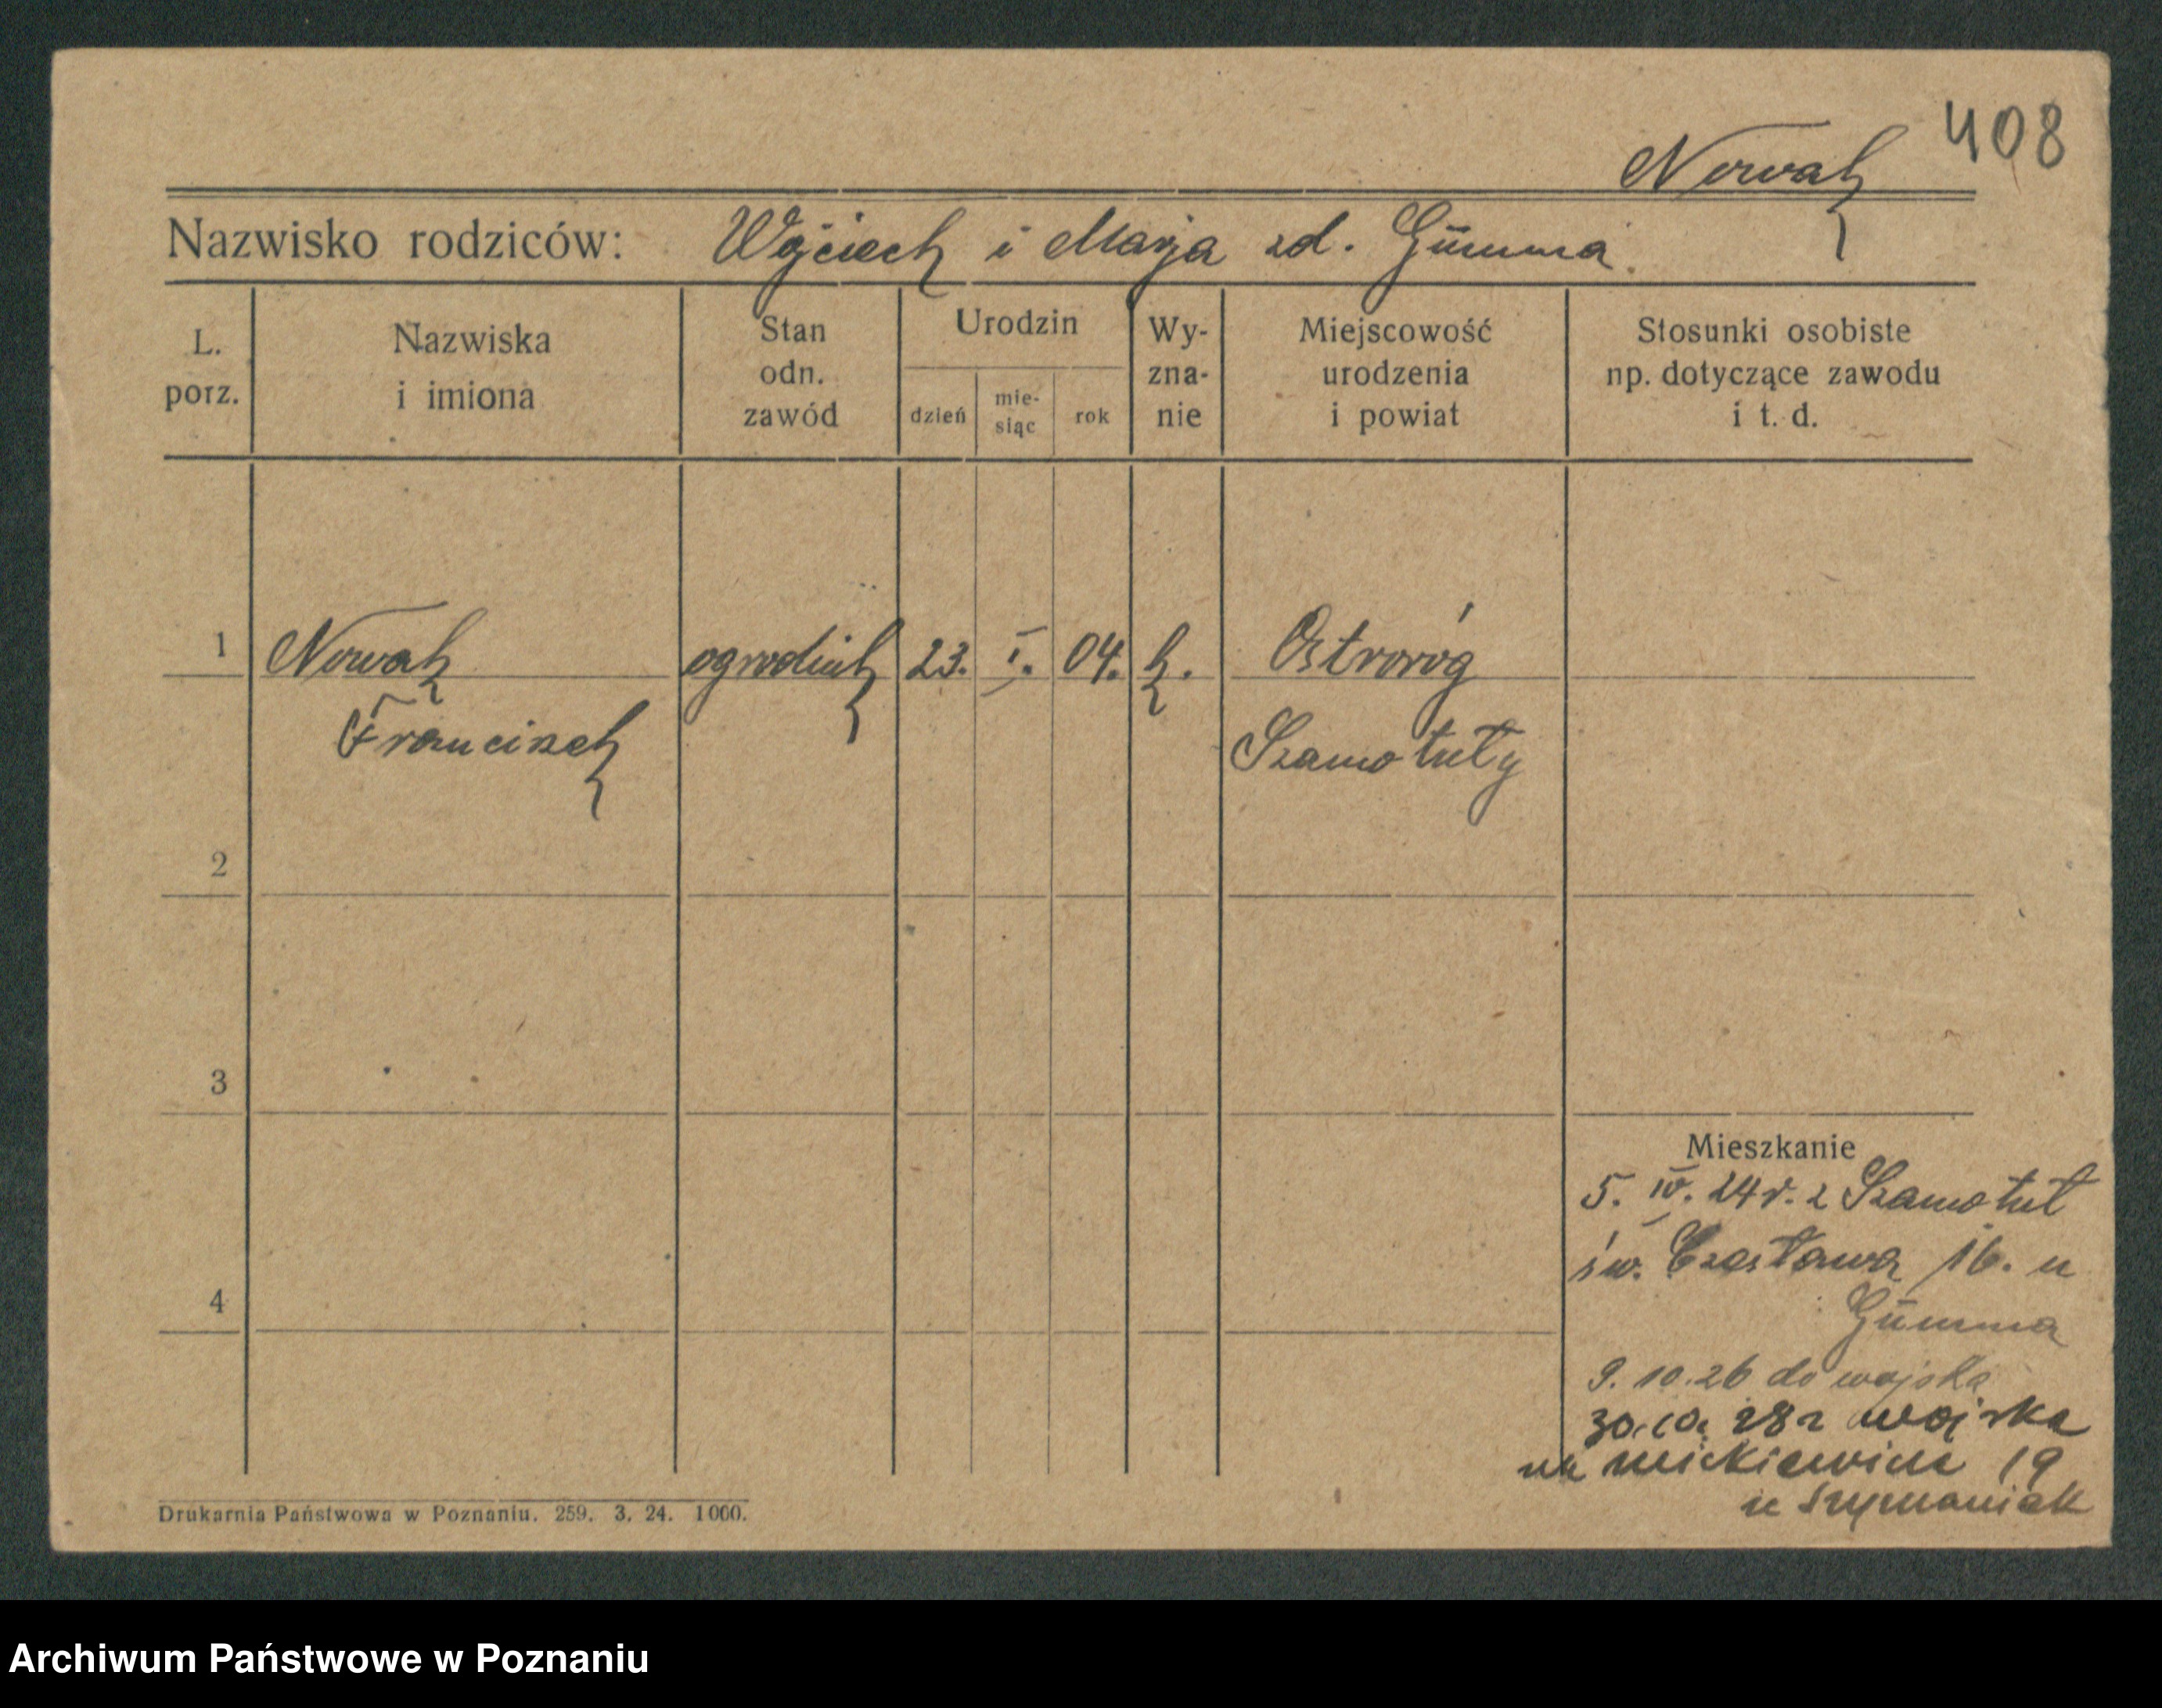 408
Nowak
Nazwisko rodziców: Wojciech i Marja zd. Gümma
L. porz.
Nazwiska i imiona
Stan odn. zawód
Urodzin
dzień
mie-
siąc
rok
Wy-
zna-
nie
Miejscowość
urodzenia
i powiat
Stosunki osobiste
np. dotyczące zawodu
i t. d.
1 Nowak ogrodnik 23. I. 04. k. Ostroróg
Franciszek Szamotuły
2
3
4
Mieszkanie
5. IV. 24 r. z Szamotuł
św. Czesława 16. u
Gümma
9.10.26 do wojska
30.10. 28 z wojska
Mickiewicza 19
u Szymaniak
Drukarnia Państwowa w Poznaniu. 259. 3. 24. 1000.
Archiwum Państwowe w Poznaniu